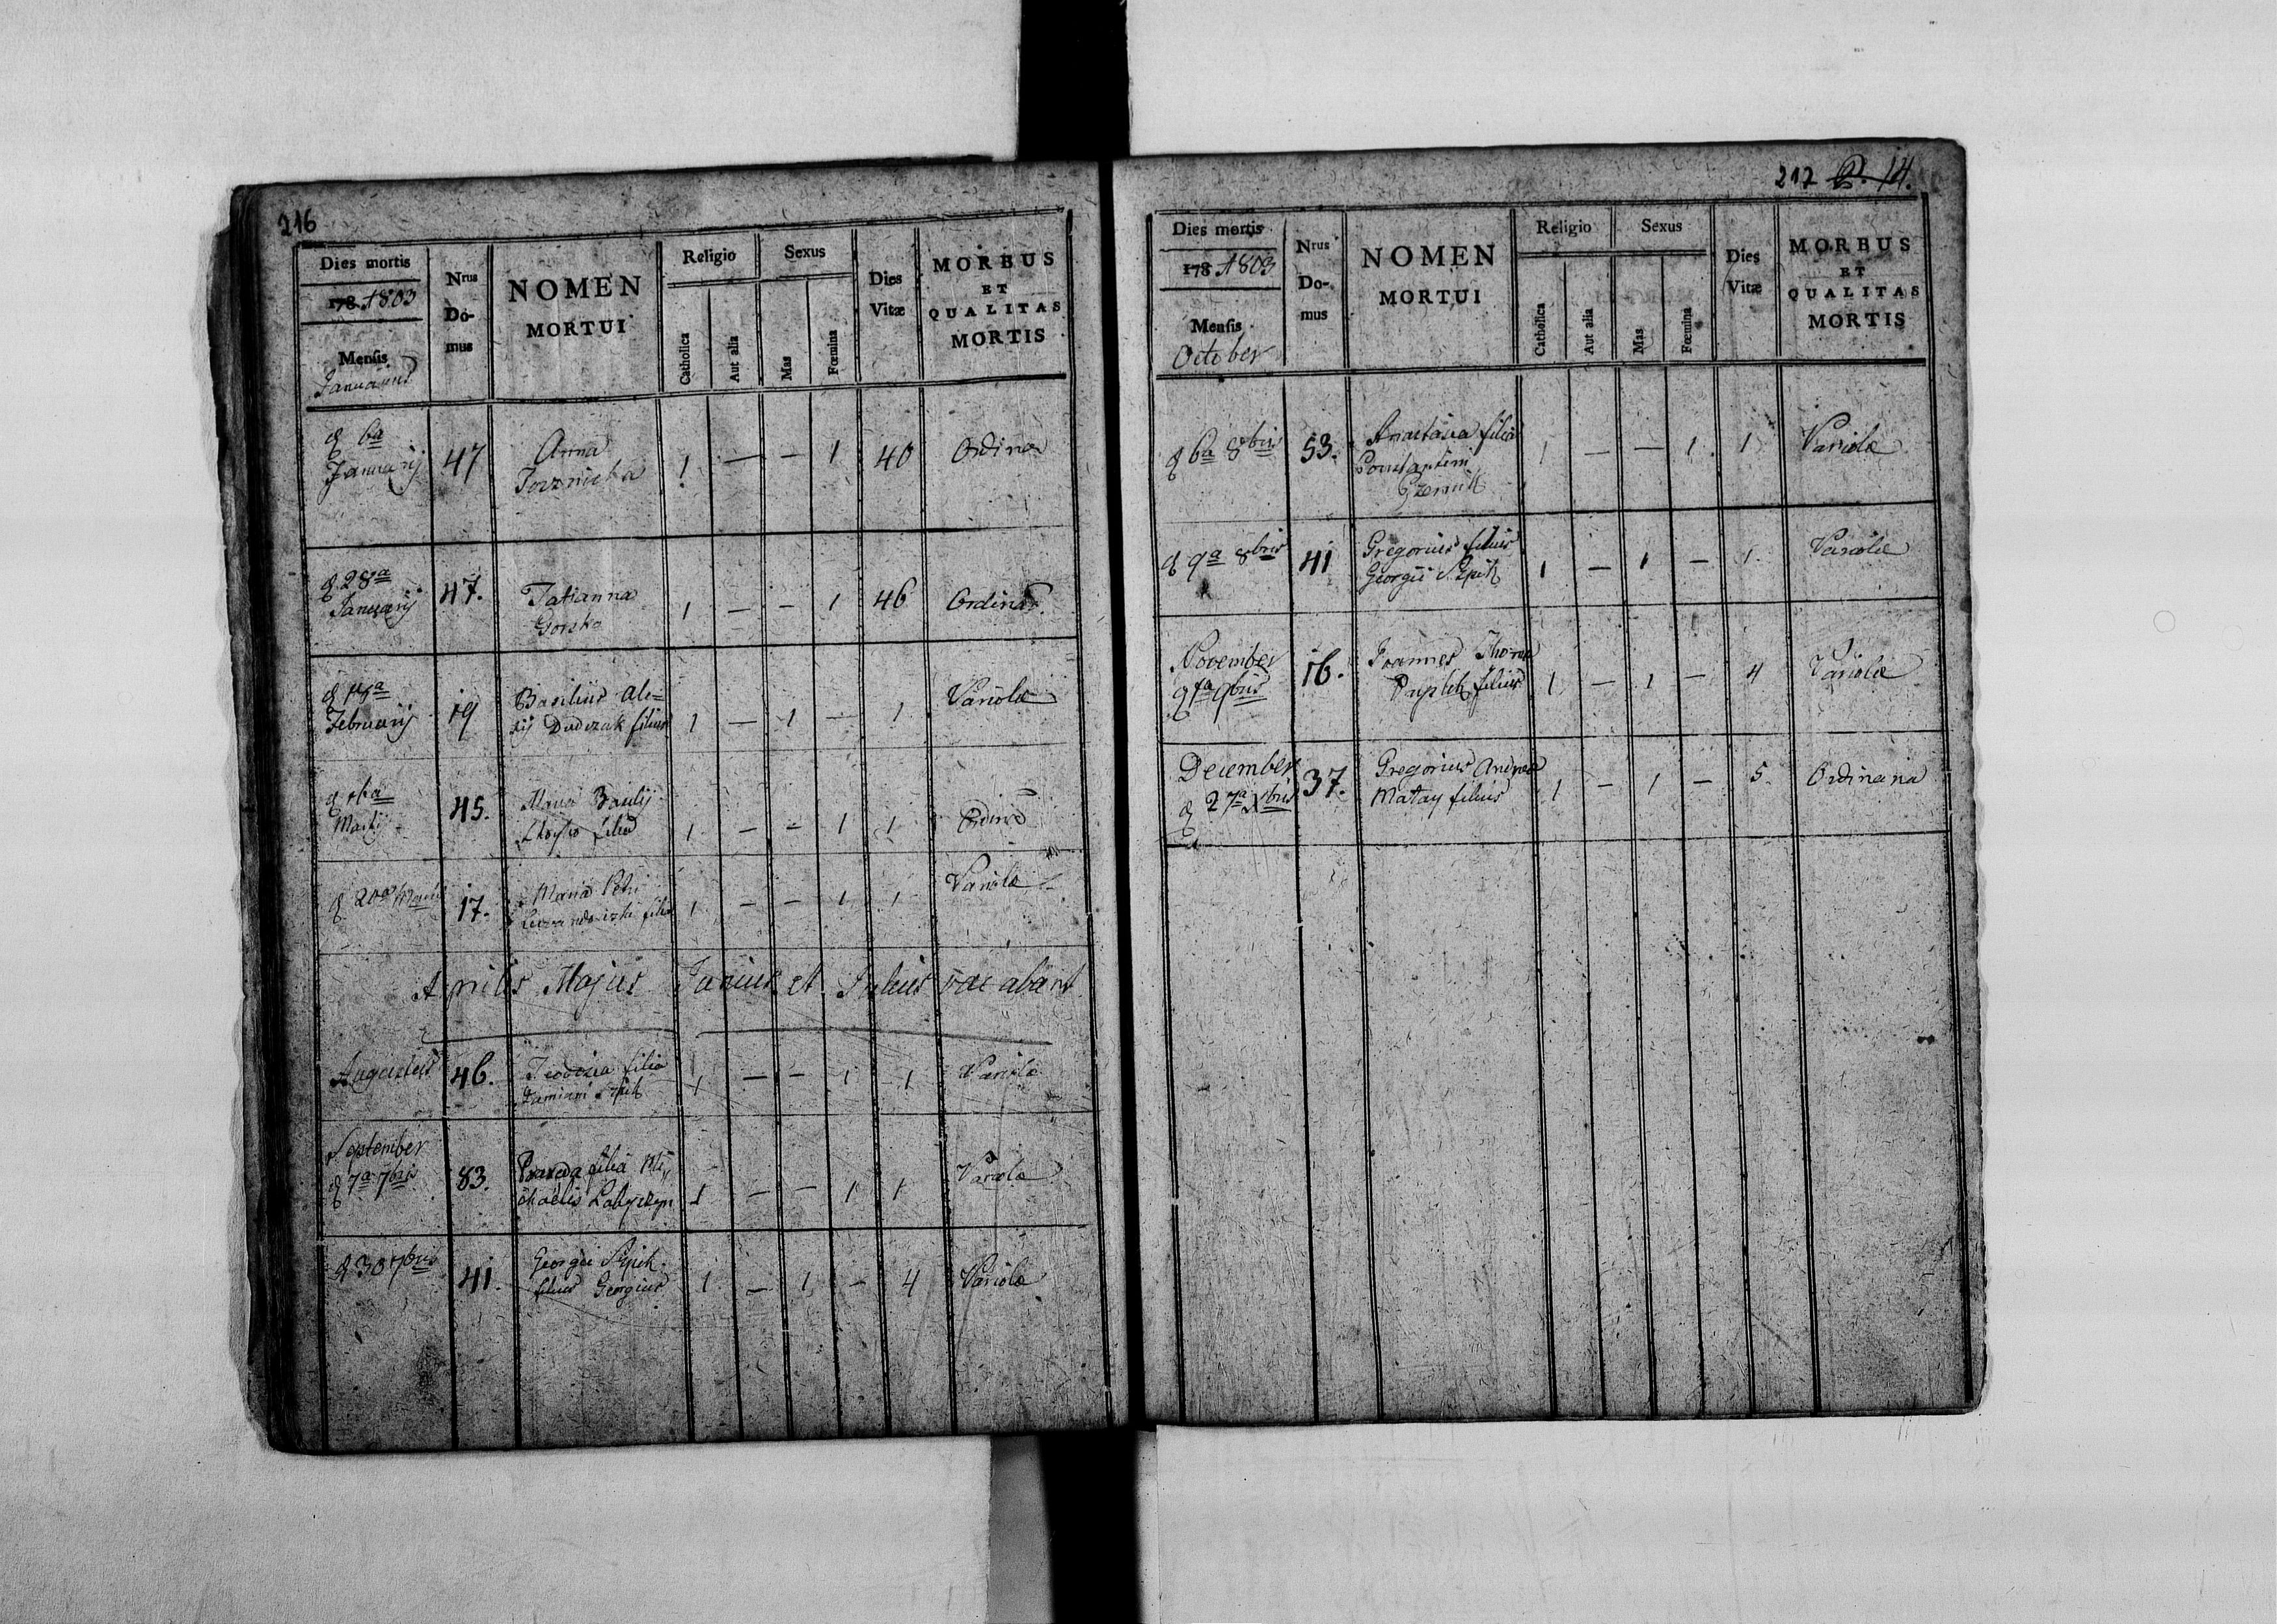 216
Dies mortis
178 1803
Mensis
Januarius
Nrus
Do-
mus
NOMEN
MORTUI
Religio
Catholica
Aut alia
Sexus
Mas
Fœmina
Dies
Vitæ
MORBUS
ET
QUALITAS
MORTIS
6a
Januarij 47 Anna 1 — — 1 40 Ordina
28a
Januarij 47. Tatianna 1 — — 1 46 Ordina
Gorska
Februarij 19 Basilius Ale= 1 — 1 — 1 Variola
xij Dudczak filius
Martij 45. Maria Basilij 1 — — 1 1 Ordina
filia
20a Martij 17. Maria Petri 1 — — 1 1 Variola
filia
Aprilis Majus Junius et Julius vacabant
Augustus 46. Teodozia filia 1 — — 1 1 Variola
Damiani
September
7a 7bris 83. filia Mi 1 — — 1 1 Variola
chaelis
30 7bris 41. Georgii 1 — 1 — 4 Variola
filius Georgius
217 14.
Dies mortis
178 1803
Mensis
October
Nrus
Do-
mus
NOMEN
MORTUI
Religio
Catholica
Aut alia
Sexus
Mas
Fœmina
Dies
Vitæ
MORBUS
ET
QUALITAS
MORTIS
6a 8bris 53. Anastasia filia 1 — — 1 1 Variola
Constantini
9a 8bris 41 Gregorius filius 1 — 1 — 1. Variola
Georgii
November 16. Joannes Thoma 1 — 1 — 4 Variola
9bris filius
December 37. Gregorius Andrea 1 — 1 — 5 Ordinaria
27a Xbris Matay filius